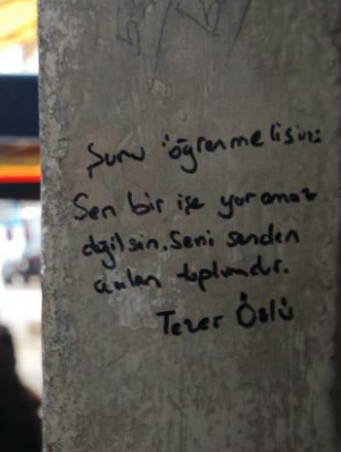 Şunu öğrenmelisin:
Sen bir işe yaramaz
değilsin. Seni senden
çalan toplumdur.
Tezer Özlü